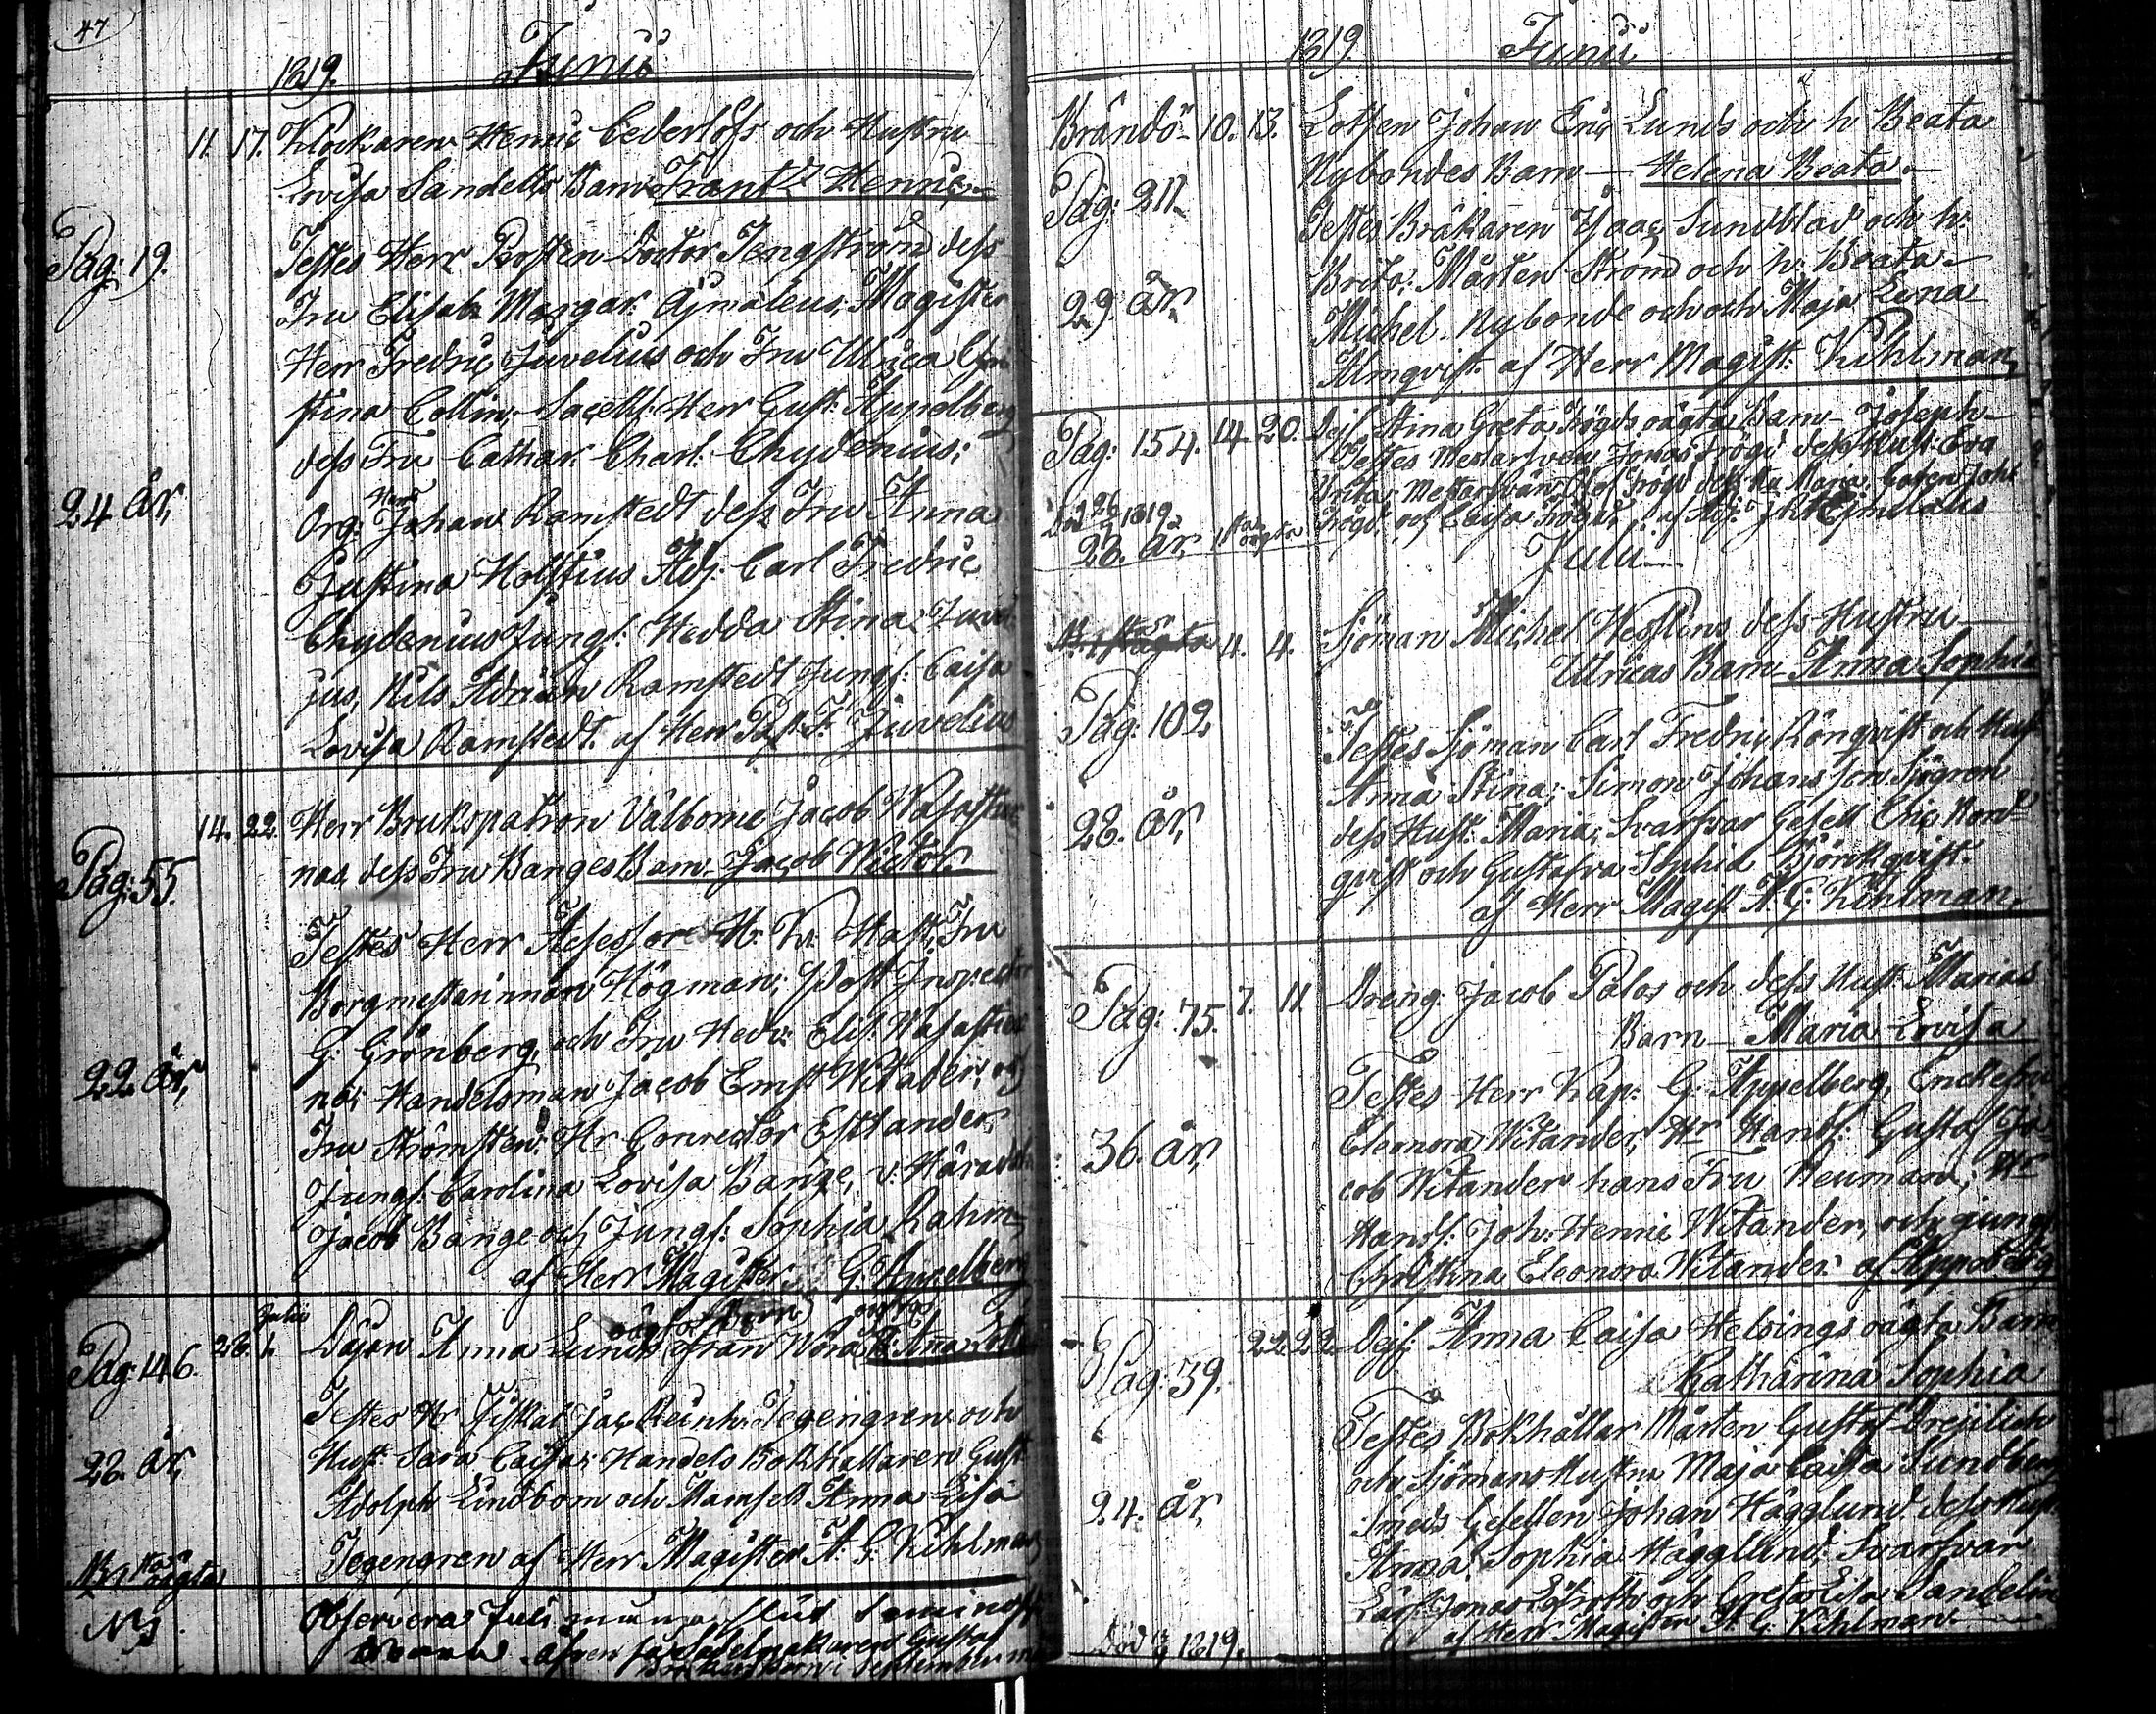 47
1819. Junii
11. 17. Klockaren Henric Cederlöfs och Hustru
Lovisa Sandells Barn Frantz Henric
Pag: 19.
Testes Herr Prosten Doctor Tengström dess
Fru Elisab. Margar. Ajmäleus; Magister
Herr Fredric Juvelius och Fru Ulrica Chri
stina Collin; Sacell: Herr Gust: Appelberg
dess Fru Cathar. Charl. Chydenius;
24 år,
Org: Herr Johan Ramstedt dess Fru Anna
Justina Holstius Adj. Carl Fredric
Chydenius Jungf: Hedda Stina Juvel
jus, Nils Adrian Ramstedt Jungf: Caisa
Lovisa Ramstedt. af Herr Past: F. Juvelius
14. 22. Herr Brukspatron Välborne Jacob Wasastjer
nas dess Fru Banges Barn Jacob Wictor.
Pag: 55.
Testes Herr Assessor Hast, Fru
Borgmestarinnan Högman; Post Inspector
G. Grönberg, och Fru Hedv: Elis. Wasastjer
22 år,
na; Handelsman Jacob Ernst Witander, och
Fru Strömsten; Hr Conrector Estlander,
Jungf. Carolina Lovisa Bange, v. Härads
Jacob Bange och Jungf: Sophia Rahm,
af Herr Magister G. Appelberg
Julii
Pag: 146. 28. 1. Anna Lunds från Wörå
Testes Hr Fiskal Jac. Reinh. Tegengren och
28. år,
Hust. Sara Caisa; Handels Bokhållaren Gust
Adolph Lindbom och Mamsell Anna Lisa
Tegengren af Herr Magister A. G. Kihlman
oägta
NB
Observeras Juli
Sadelmakaren Gustaf
September
1819. Junii
Brändö 10. 13. Lotsen Johan Eric Lunds och h. Beata
Nybondes Barn — Helena Beata.
Pag: 211
Testes Bråkaren Isaac Sundblad och h.
Brita; Mårten Ström och h. Beata
29. år,
Michel Nybonde och och Maja Lena
Almqvist. af Herr Magist: Kihlman
Pag: 154. 14. 20. Stina Greta Frögds oägta Barn Joseph
Testes Jonas Frögd dess Hust: Eva
Brita; Maria,
1819
28. år, och Caisa Frögd,
Julii
4. 4. Sjöman Michel Westlins dess Hustru
Ulricas Barn Anna Sophia
Pag: 102
Testes Sjöman Carl Fredric Rönqvist och Hust
Anna Stina; Simon Johansson Sjögren
28. år,
dess Hust: Maria; Svarfvar Gesell Eric Nord
qvist och Gustafva Sophia Björkqvist.
af Herr Magist A. G. Kihlman.
Pag: 75. 7. 11. Dreng. Jacob Palos och dess Hust. Marias
Barn — Maria Lovisa
Testes Herr Kap: G: Appelberg, Enckefru
Eleonora Witander; Hr Handl: Gustaf Ja
36. år,
cob Witander hans Fru Neuman; Hr
Handl: Joh: Henric Witander, och jungf
Christina Eleonora Witander. af Appelberg
Pag: 39. 22. 22. Anna Caisa Helsings oägta Barn
Katharina Sophia
Testes Bokhållar Mårten Gustaf
och Sjömans Hustru Maja Caisa Sundberg
24. år,
Smeds Gesellen Johan Hägglund dess Hust
Anna Sophia Hägglund; Svarfvar
Lärl: Jonas och Greta Lisa Sandelin
af Herr Magister A. G. Kihlman.
Död 1819.